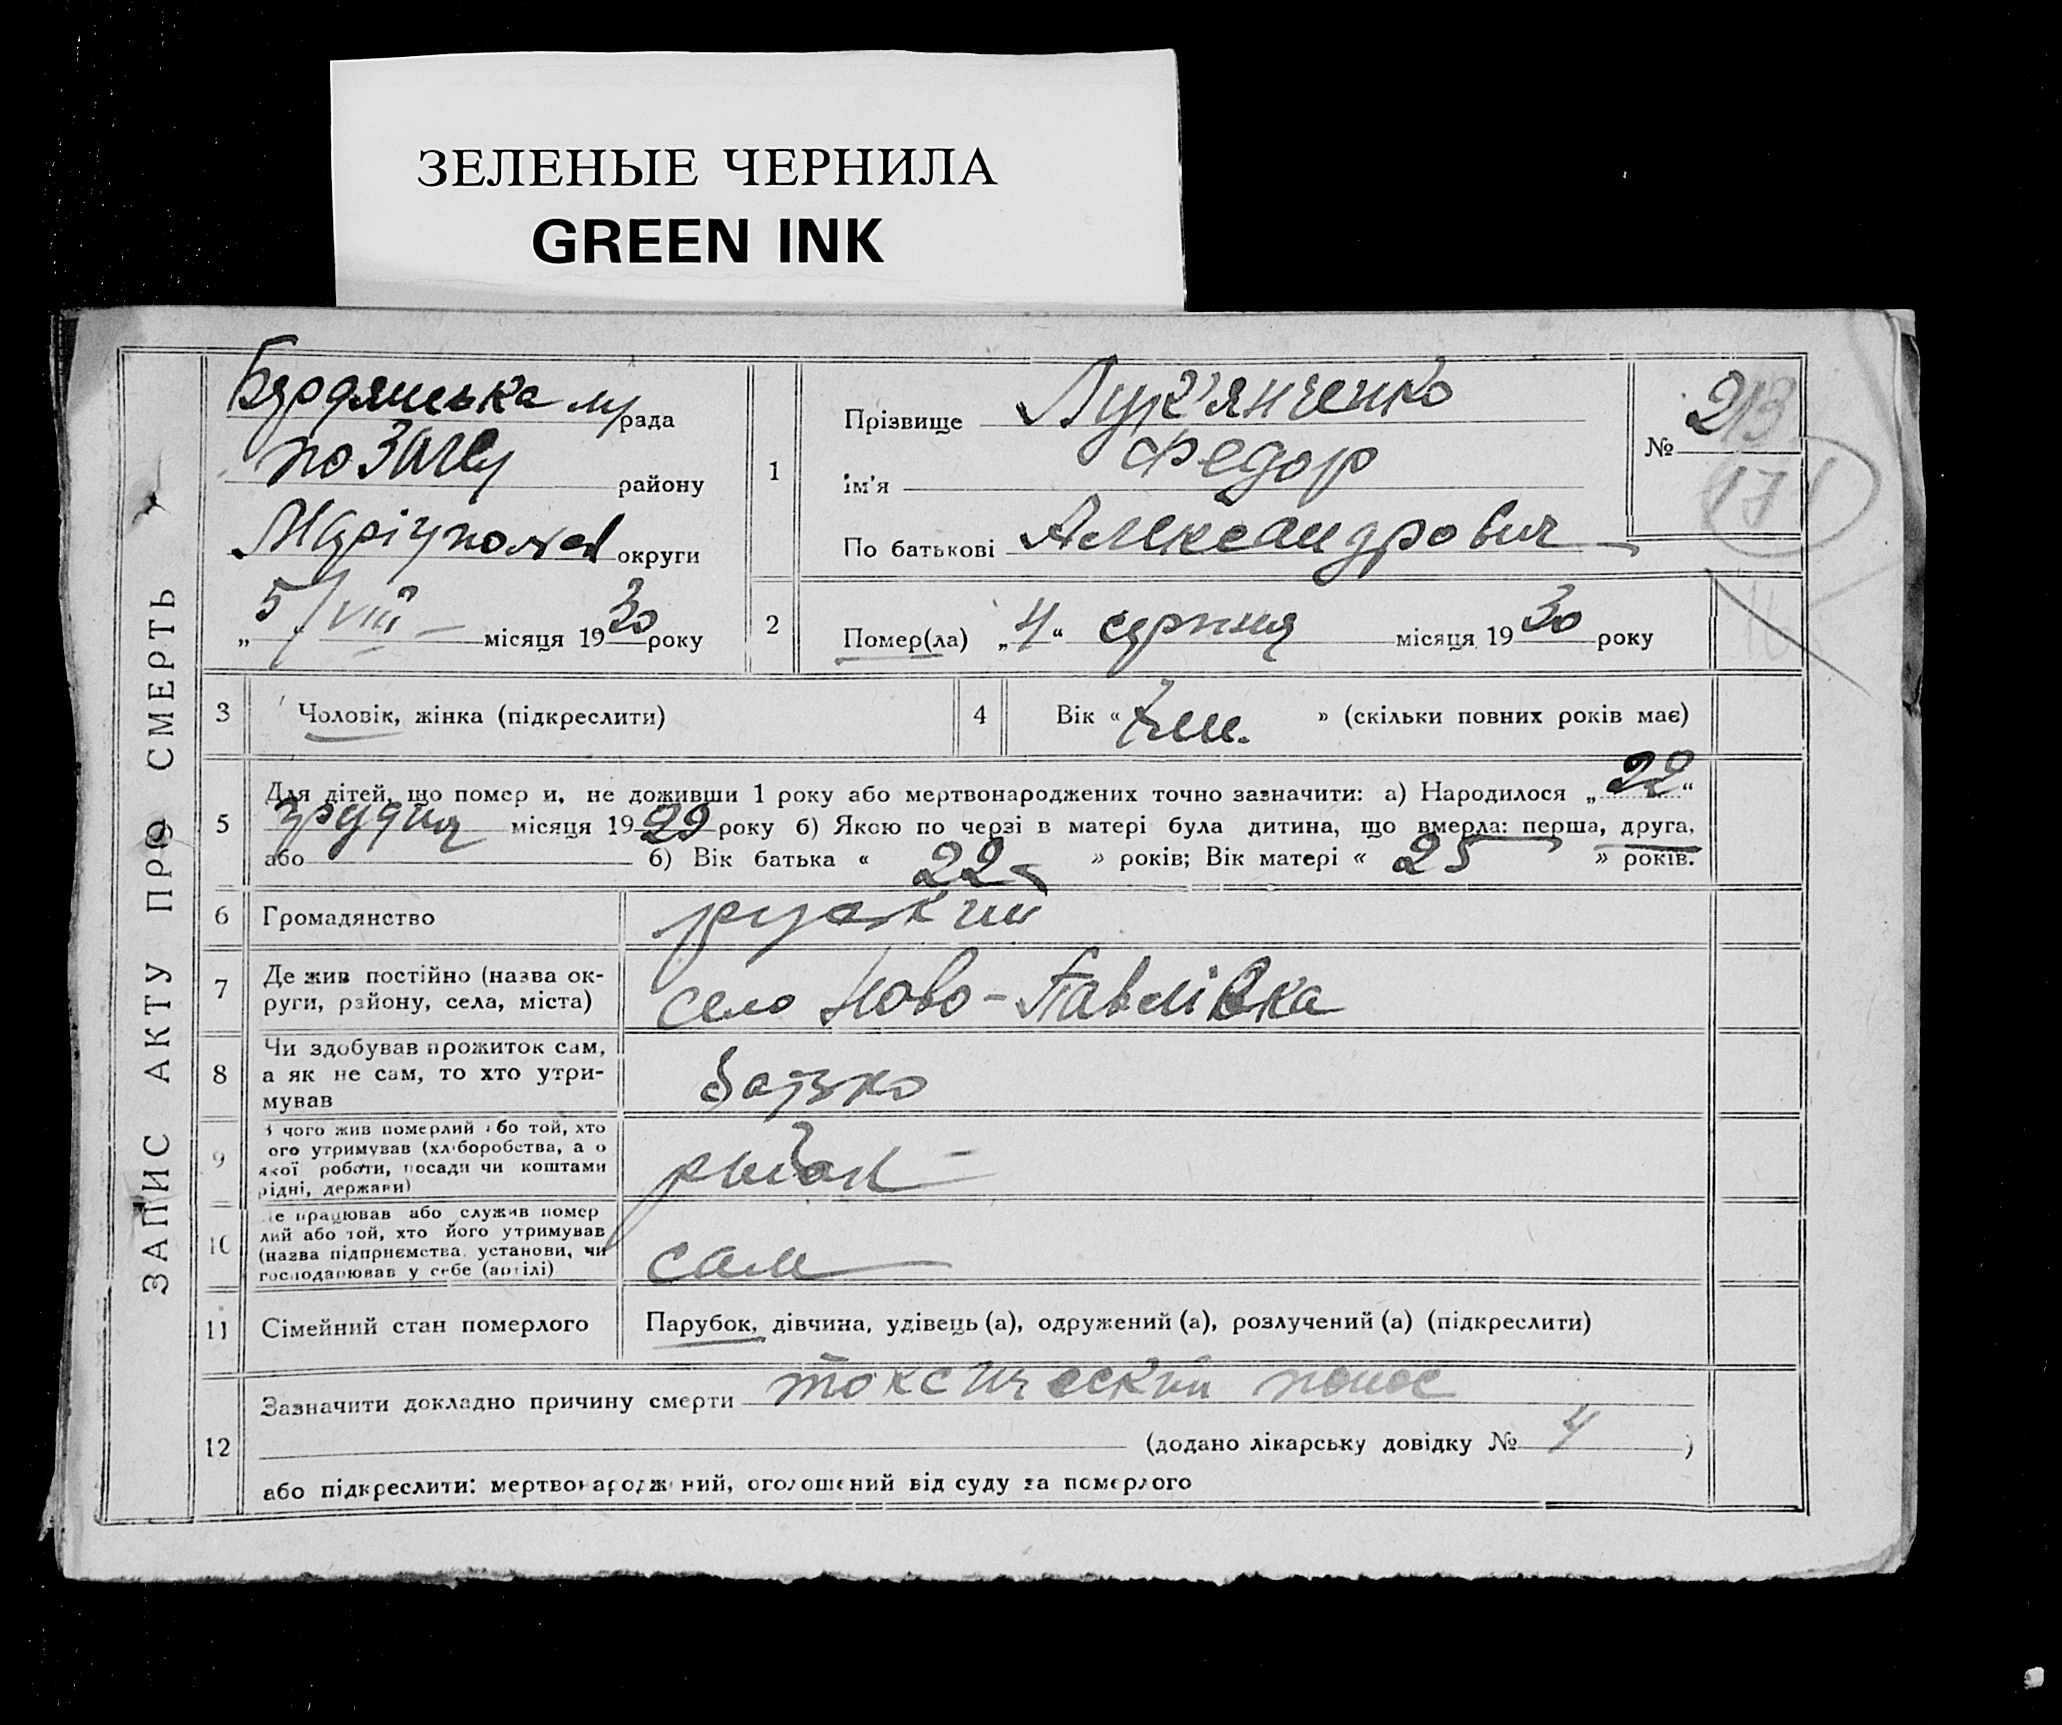 ЗЕЛЕНЫЕ ЧЕРНИЛА
GREEN INK
ЗАПИС АКТУ ПРО СМЕРТЬ
Бердянська м рада
по ЗАГСу району
Маріупольськ округи
„ 5/VIII “ місяця 1930 року
1
Прізвище Лук'янченко
ім'я Федор
По батькові Александрович
№ 213
171
2
Помер(ла) „ 4 “ серпня місяця 1930 року
3 Чоловік, жінка (підкреслити)
4 Вік « 7 м. » (скільки повних років має)
5
Для дітей, що померли, не доживши 1 року або мертвонароджених точно зазначити: а) Народилося „ 22 “
грудня місяця 1929 року б) Якою по черзі в матері була дитина, що вмерла: перша, друга,
або б) Вік батька « 22 » років; Вік матері « 25 » років.
6 Громадянство руский
7 Де жив постійно (назва ок-
руги, району, села, міста) село Ново-Павлівка
8 Чи здобував прожиток сам,
а як не сам, то хто утри-
мував батько
9 З чого жив померлий або той, хто
його утримував (хліборобства, а о
якої роботи, посади чи коштами
рідні, держави) рибак
10 Де працював або служив помер
лий або той, хто його утримував
(назва підприємства, установи, чи
господарював у себе (артілі) сам
11 Сімейний стан померлого Парубок, дівчина, удівець (а), одружений (а), розлучений (а) (підкреслити)
12
Зазначити докладно причину смерти токсический понос
(додано лікарську довідку № 4 )
або підкреслити: мертвонароджений, оголошений від суду за померлого